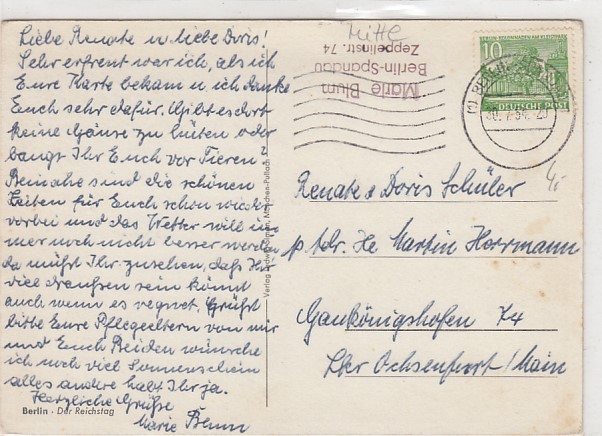 Liebe Renate u liebe Doris!
Sehr erfreut war ich, als ich
Eure Karte bekam u ich danke
Euch sehr dafür. Gibt es dort
keine Gänse zu hüten oder
bangt Ihr Euch vor Tieren?
Beinahe sind die schönen
Zeiten für Euch schon wieder
vorbei und das Wetter will im
mer noch nicht besser werden
da müßt Ihr zusehen, daß Ihr
viel draußen sein könnt
auch wenn es regnet. Grüßt
bitte Eure Pflegeeltern von mir
und Euch Beiden wünsche
ich noch viel Sonnenschein
alles andere habt Ihr ja.
Herzliche Grüße
Marie Blum
Berlin · Der Reichstag
Mitte
Marie Blum
Berlin-Spandau
Zeppelinstr. 74
10
DEUTSCHE POST
Renate & Doris Schüler
p. Adr. He Martin Horrmann
Gaukönigshofen 74
Lkr Ochsenfurt/Main